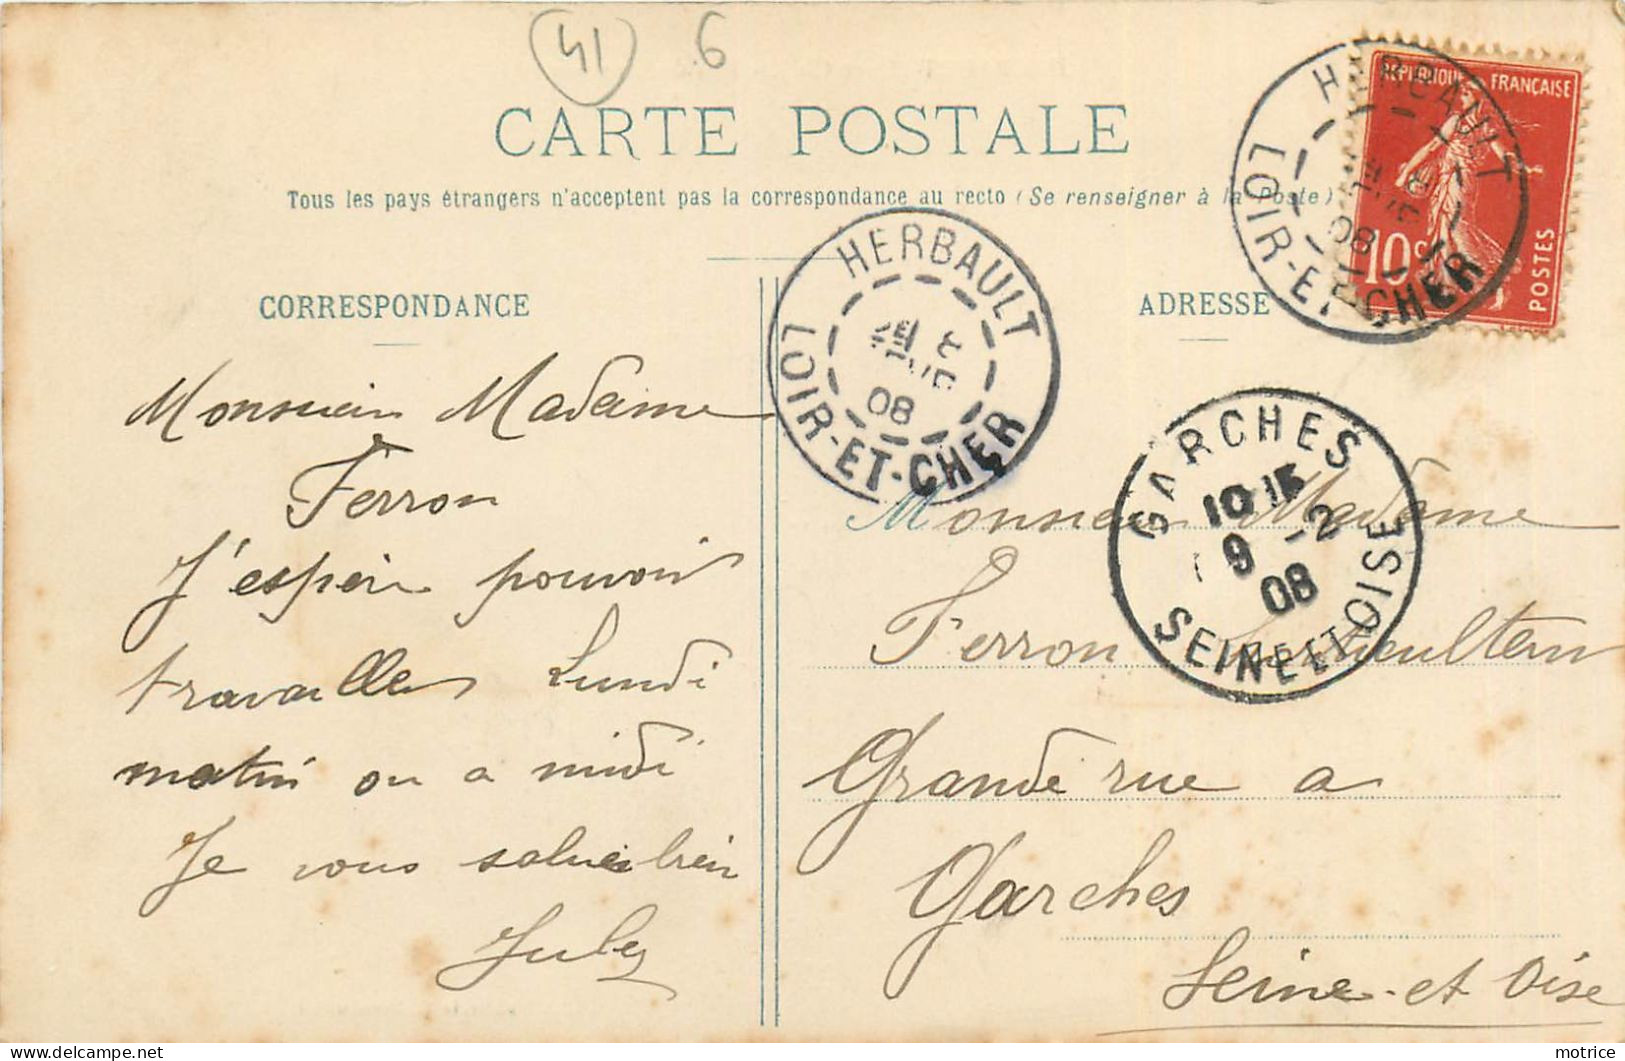 41 6
CARTE POSTALE
Tous les pays étrangers n'acceptent pas la correspondance au recto (Se renseigner à la Poste)
REPUBLIQUE FRANÇAISE
10 c
POSTES
HERBAULT
08
LOIR-ET-CHER
HERBAULT
08
LOIR-ET-CHER
GARCHES
10 15
9 -2
08
SEINE ET OISE
CORRESPONDANCE
Monsieur Madame
Ferron
J'espère pouvoir
travailler Lundi
matin ou a midi
Je vous salue bien
Jules
ADRESSE
Monsieur Madame
Ferron horticulteur
Grande rue a
Garches
Seine-et Oise
motrice